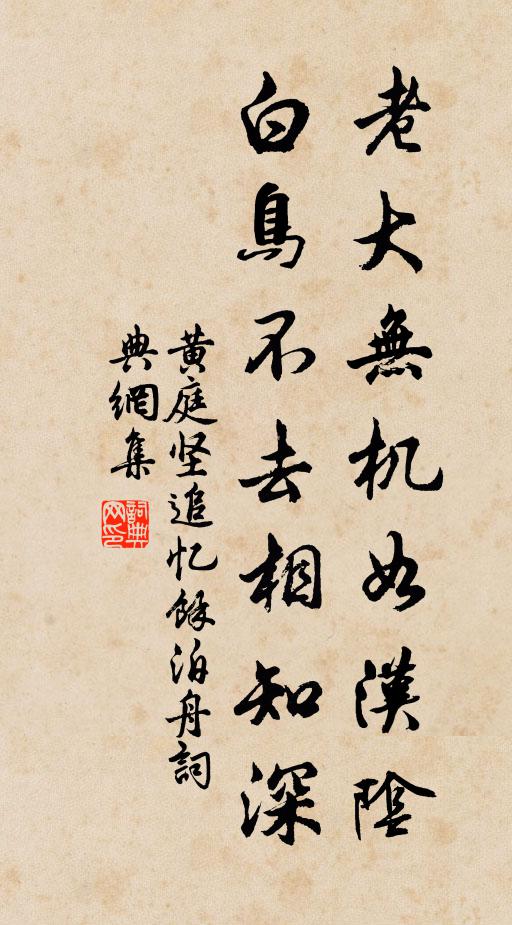 老大無机如漢陰
白鳥不去相知深
黄庭坚追忆餘泊舟詞
典網集
詞典網印